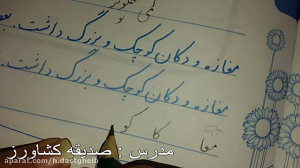 مغازه و دکان کوچک و بزرگ داشت.
مغازه و دکان کوچک و بزرگ داشت.
مغا کا کو
مدرس : صدیقه کشاورز
aparat.com/h.dastgheib